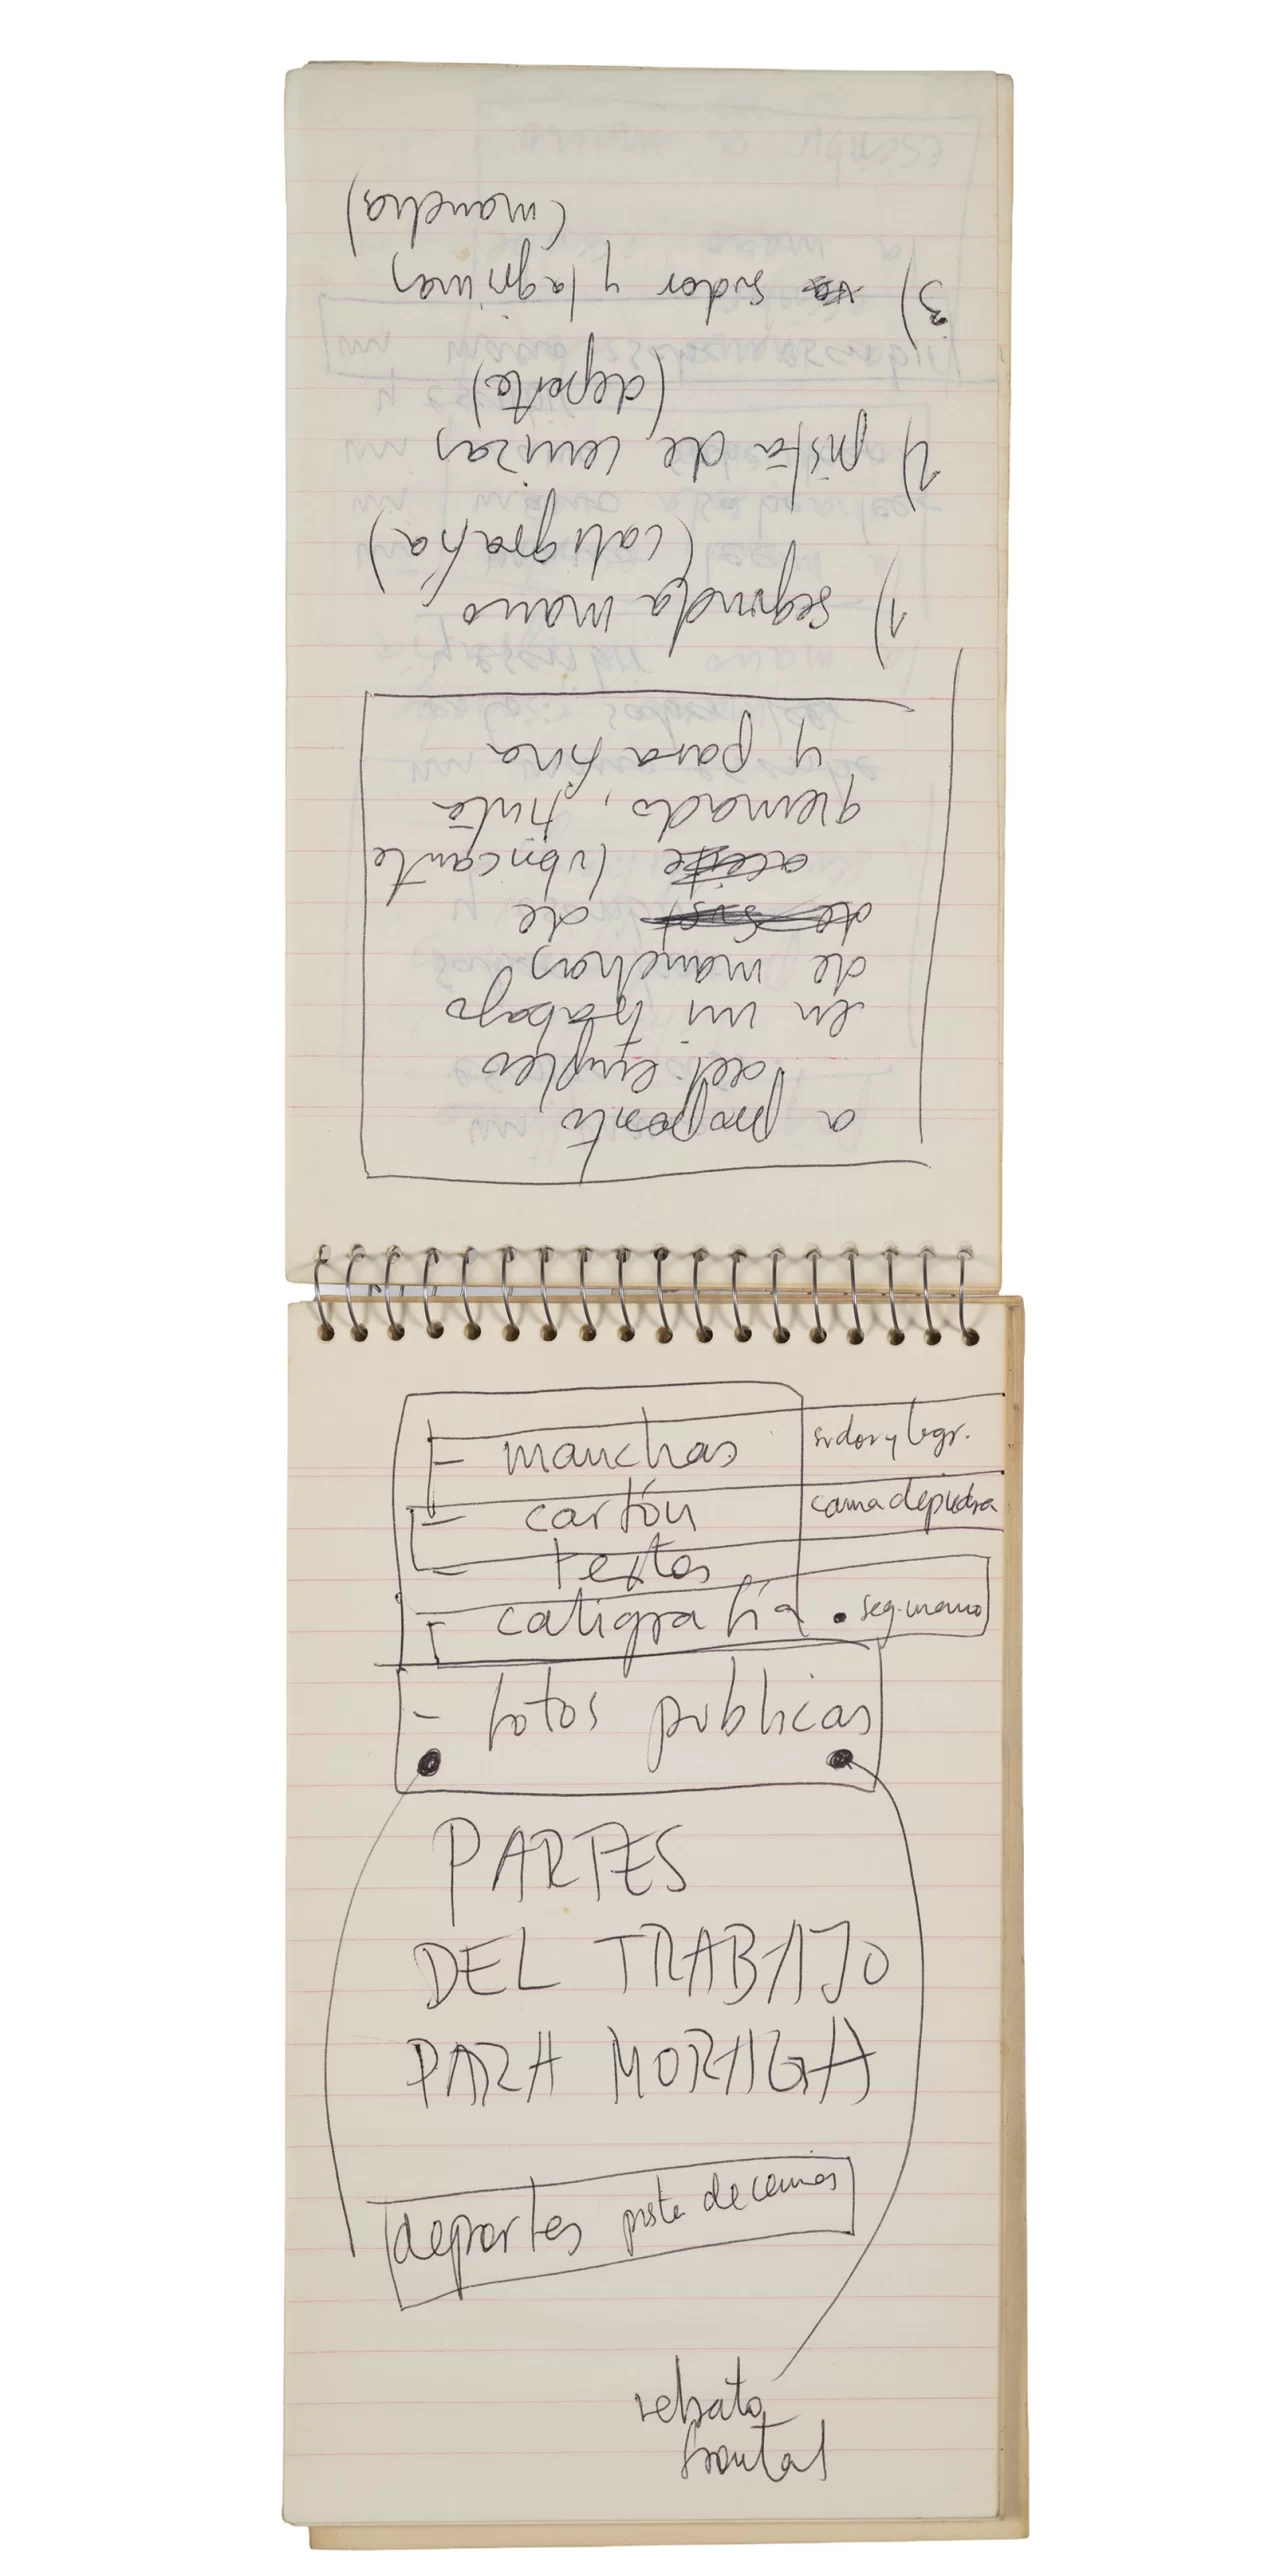 a proposito
del empleo
en mi trabajo
de manchas
de de
aceite lubricante
quemado, tinta
y parafina
1) segunda mano
(caligrafía)
2) pista de cenizas
(deporte)
3) sudor y lagrimas
(mancha)
- manchas sudor y lagr.
- cartón cama de piedra
- textos
- caligrafía • seg. mano
- fotos publicas
PARTES
DEL TRABAJO
PARA MORAGA
deportes pista de cenizas
retrato
frontal